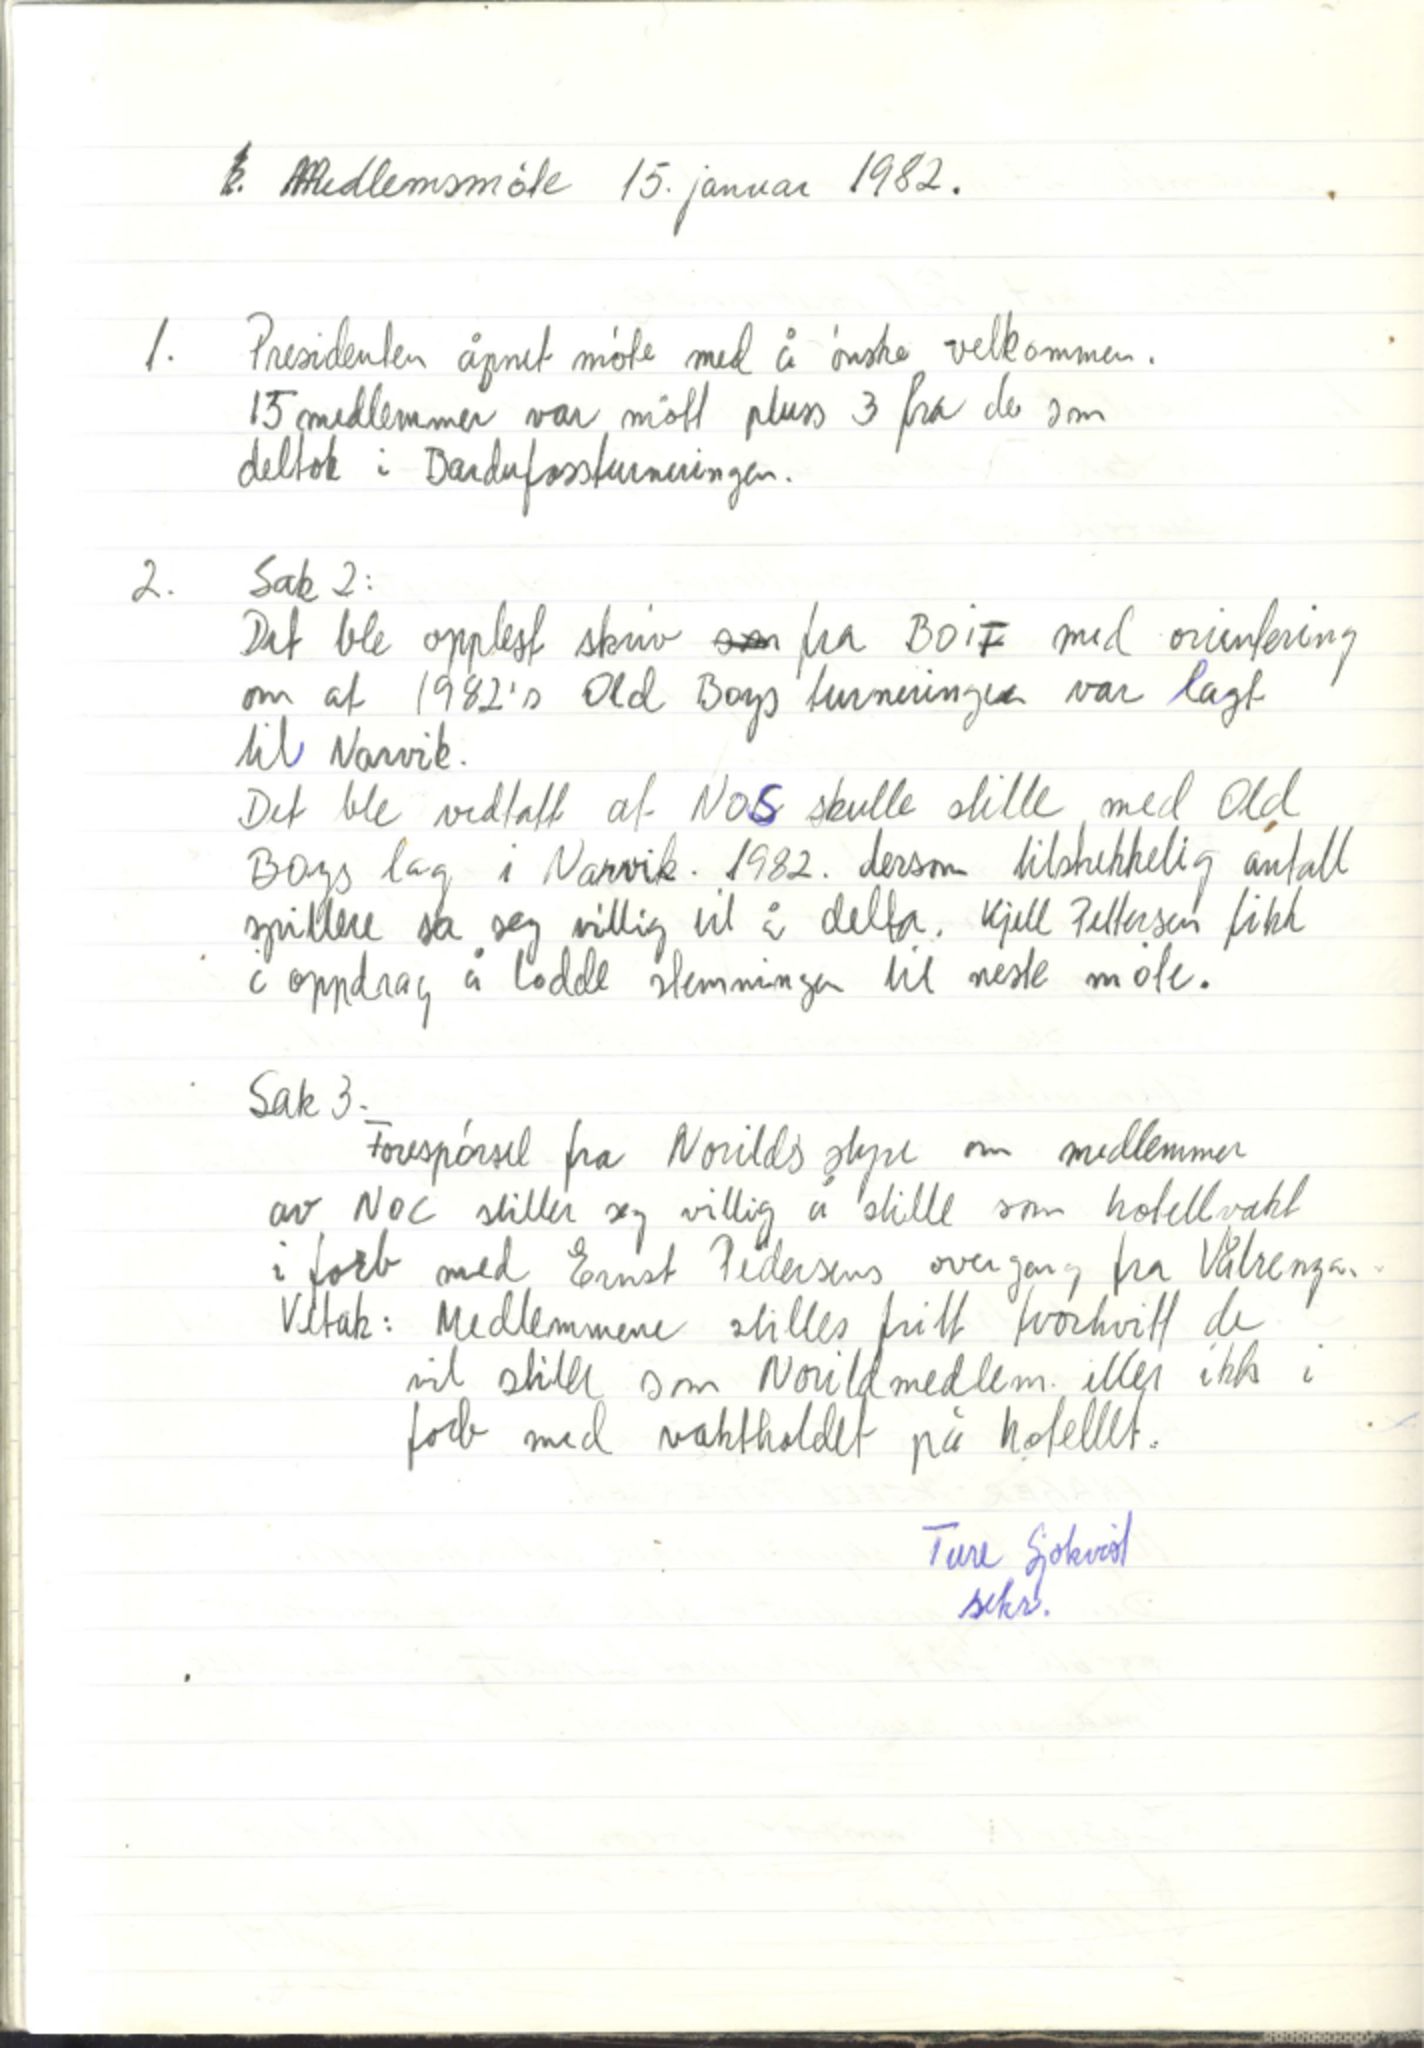 Medlemsmöte 15. januar 1982.
1. Presidenten åpnet möte med å önske velkommen.
15 medlemmer var mött pluss 3 fra de som
deltok i Bardufossturneringen.
2. Sak 2:
Det ble opplest skriv fra BOIF med orientering
om at 1982's Old Boys turneringen var lagt
til Narvik.
Det ble vedtatt at NOS skulle stille med Old
Boys lag i Narvik. 1982. dersom tilstrekkelig antall
spillere sa seg villig til å delta. Kjell Pettersen fikk
i oppdrag å lodde stemningen til neste möte.
Sak 3.
Forespörsel fra Norilds styre om medlemmer
av NOC stiller seg villig å stille som hotellvakt
i forb med Ernst Pedersens overgang fra Vålrenga.
Vetak: Medlemmene stilles fritt hvorhvitt de
vil stille som Norildmedlem. eller ikke i
forb med vaktholdet på hotellet.
Ture Sjökvist
sekr.